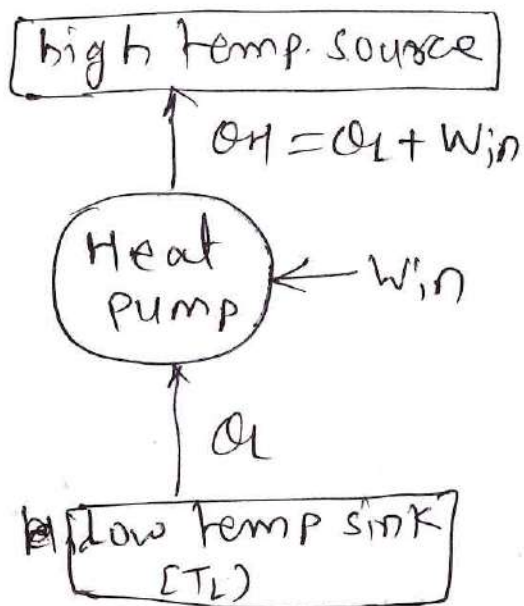 high temp. source
QH = QL + Win
Heat
pump
Win
QL
Low temp sink
[TL)